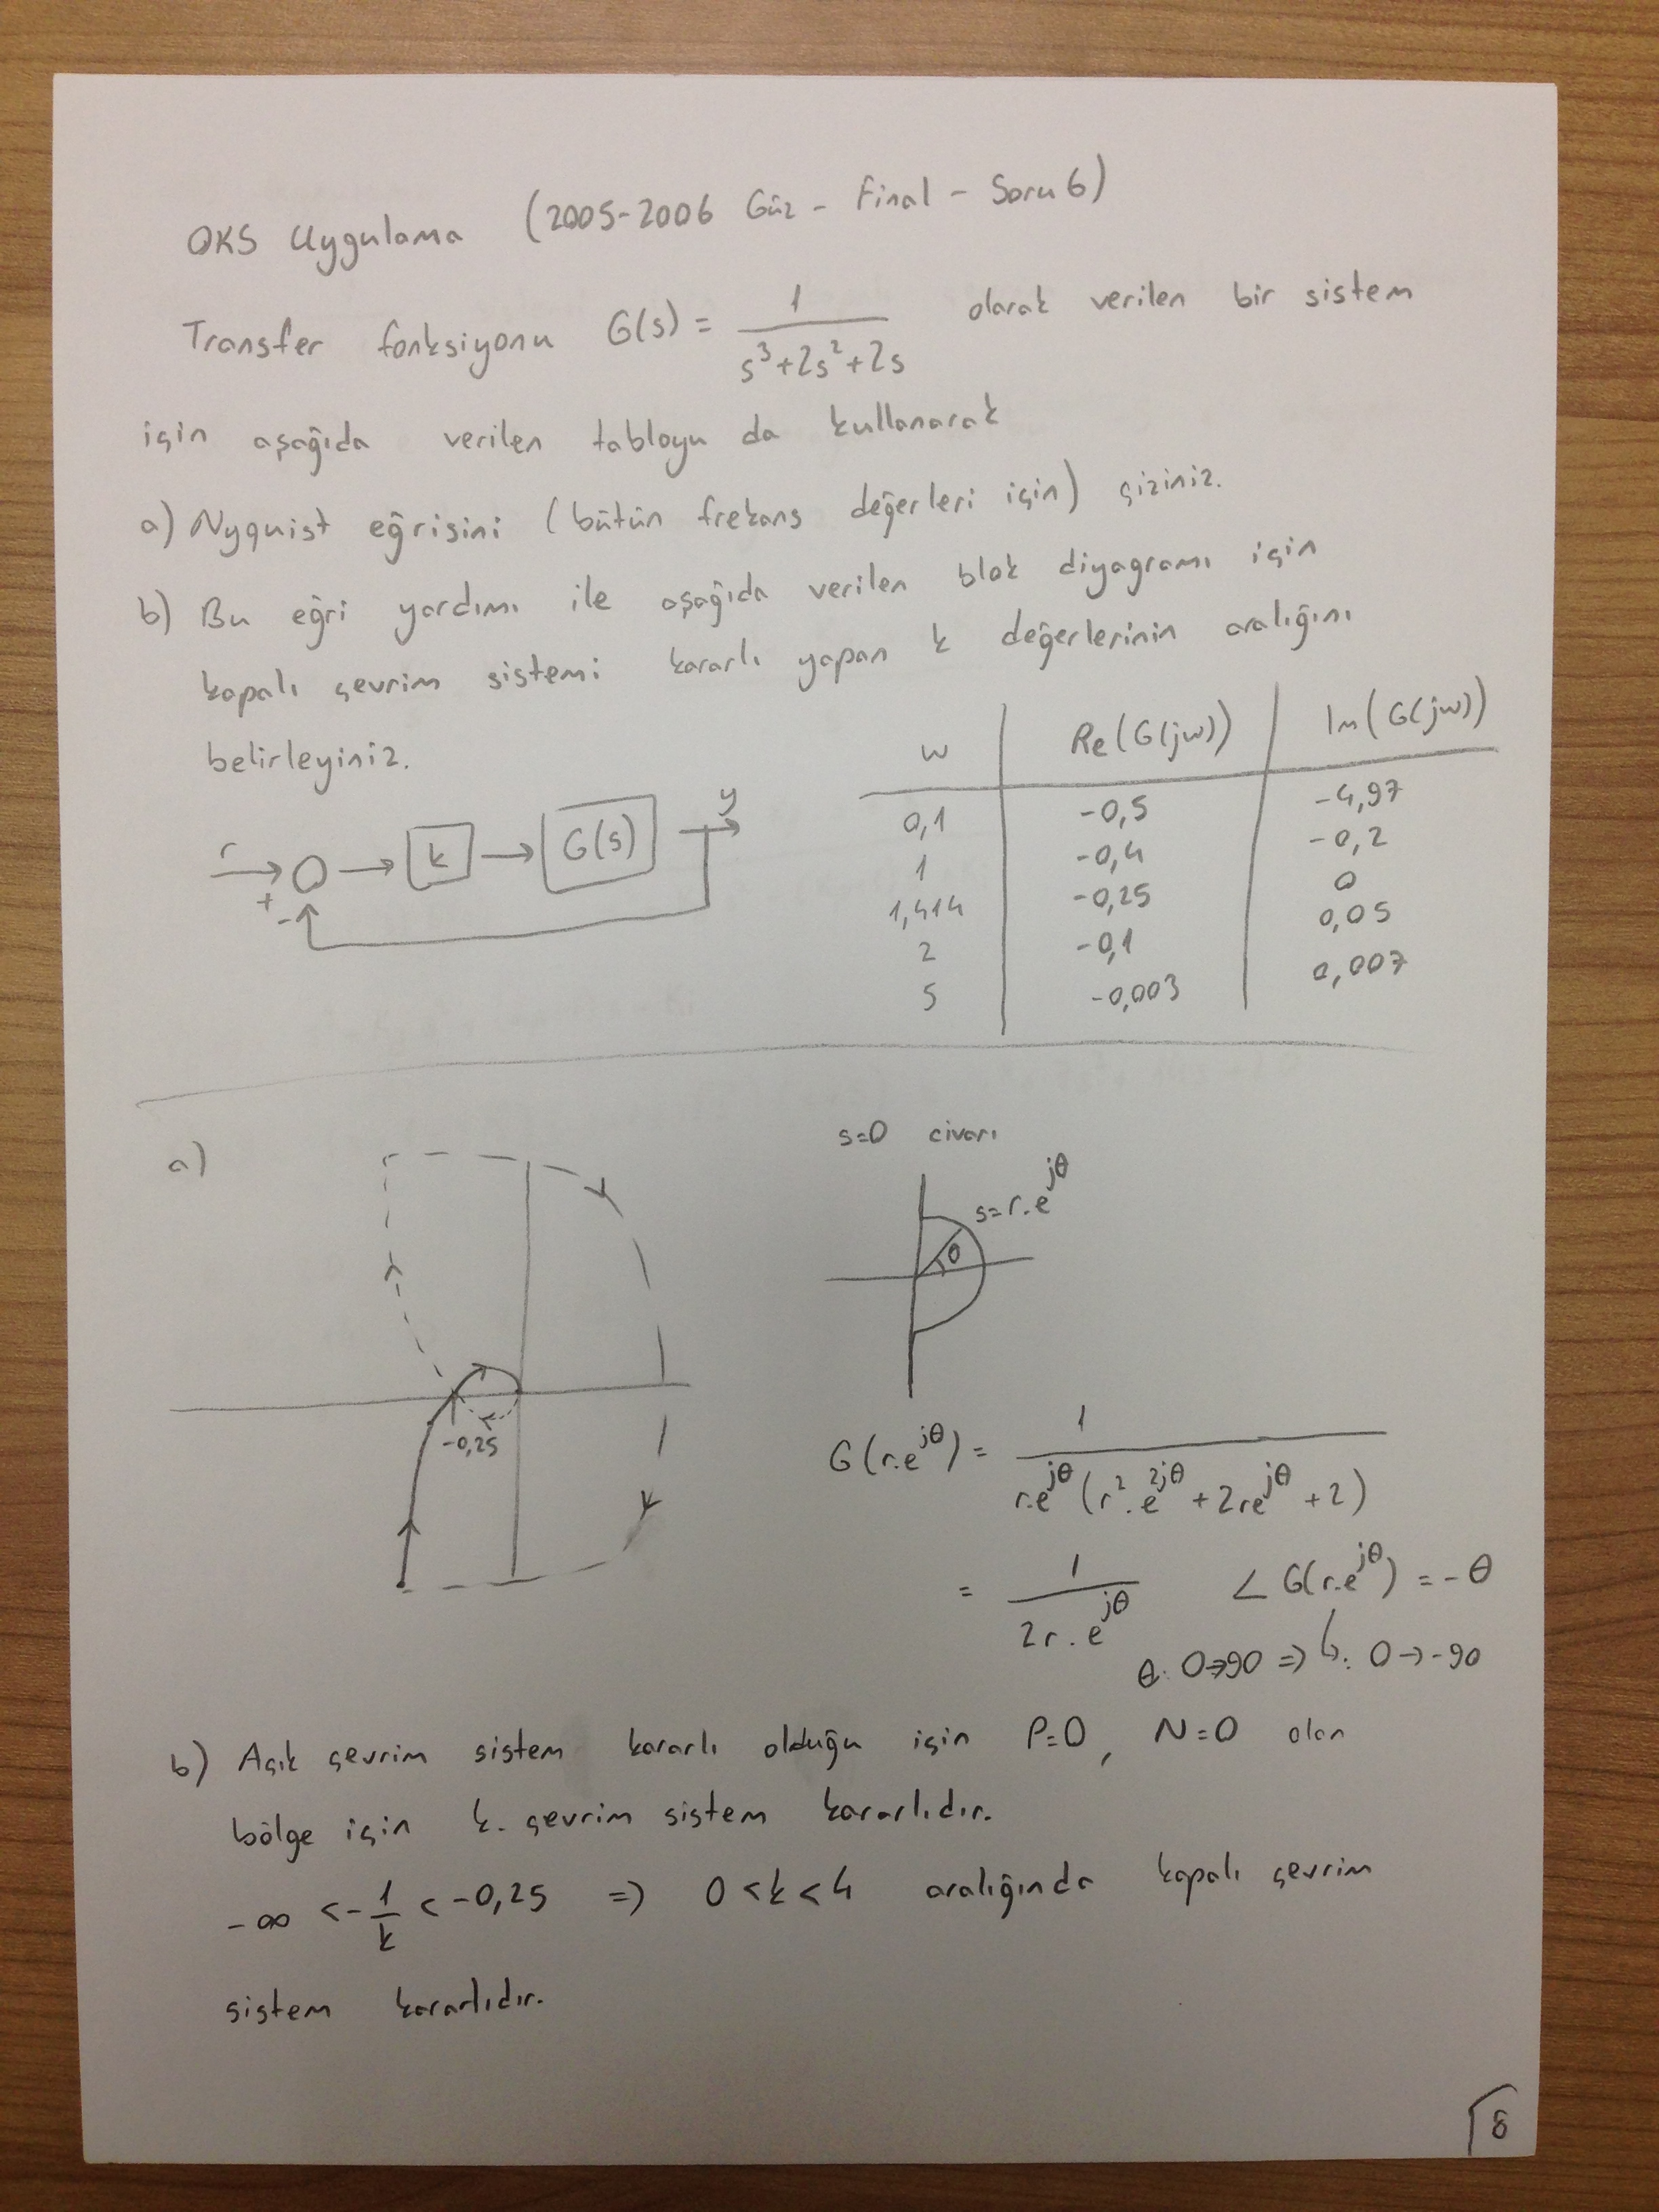 OKS Uygulama (2005-2006 Güz - Final - Soru 6)
Transfer fonksiyonu G(s) = 1 / (s³+2s²+2s) olarak verilen bir sistem
için aşağıda verilen tabloyu da kullanarak
a) Nyquist eğrisini (bütün frekans değerleri için) çiziniz.
b) Bu eğri yardımı ile aşağıda verilen blok diyagramı için
kapalı çevrim sistemi kararlı yapan k değerlerinin aralığını
belirleyiniz.
r + - k G(s) y
w Re(G(jw)) Im(G(jw))
0,1 -0,5 -4,97
1 -0,4 -0,2
1,414 -0,25 0
2 -0,1 0,05
5 -0,003 0,007
a)
-0,25
s=0 civarı
s=r.e^jθ
θ
G(r.e^jθ) = 1 / (r.e^jθ (r².e^2jθ + 2re^jθ + 2))
= 1 / (2r.e^jθ) ∠G(r.e^jθ) = -θ
θ: 0→90 => ↳: 0→-90
b) Açık çevrim sistem kararlı olduğu için P=0, N=0 olan
bölge için k. çevrim sistem kararlıdır.
-∞ < -1/k < -0,25 => 0<k<4 aralığında kapalı çevrim
sistem kararlıdır.
8